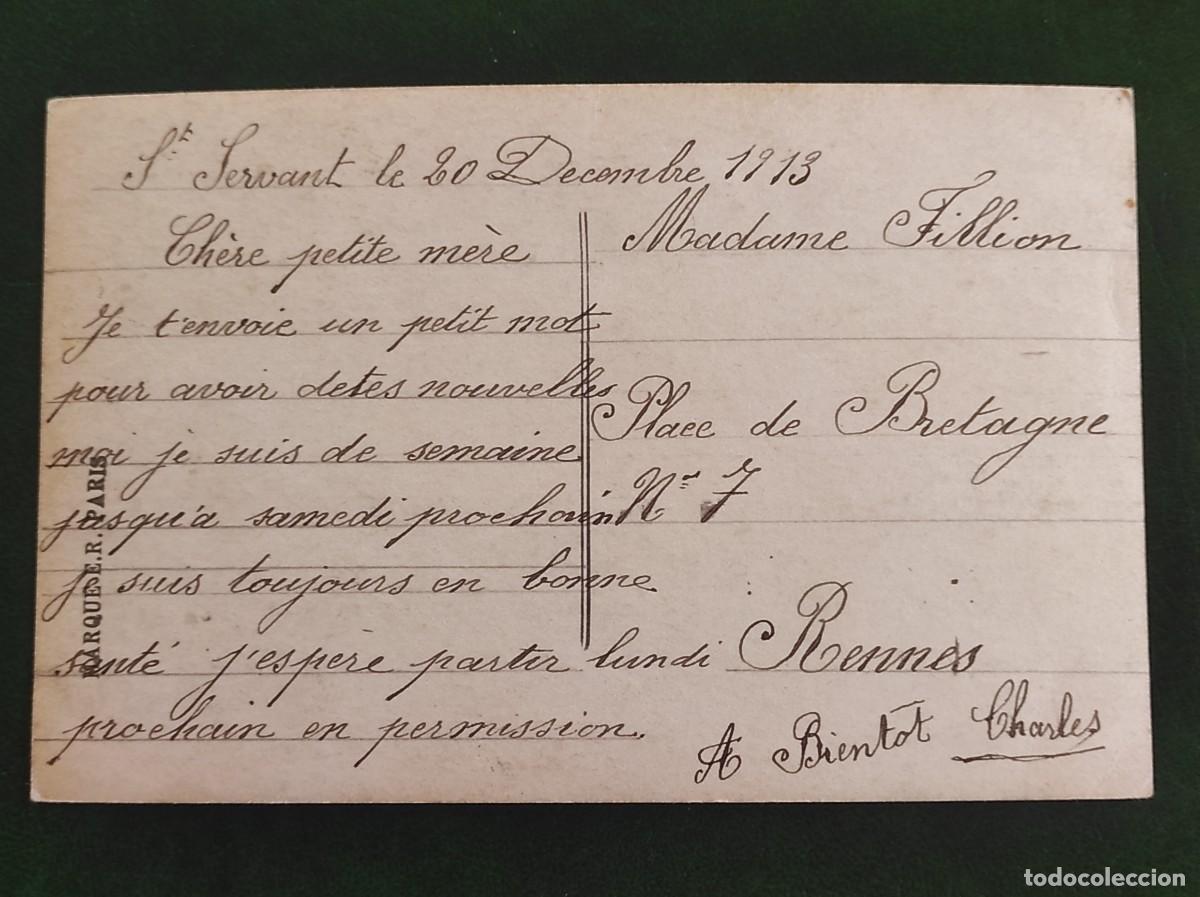 St Servant le 20 Decembre 1913
Chère petite mère
Je t'envoie un petit mot
pour avoir detes nouvelles
moi je suis de semaine
jusqu'a samedi prochain
je suis toujours en bonne
santé j'espère partir lundi
prochain en permission.
A Bientôt Charles
Madame Fillion
Place de Bretagne
No 7
Rennes
MARQUE E.R. PARIS
todocoleccion